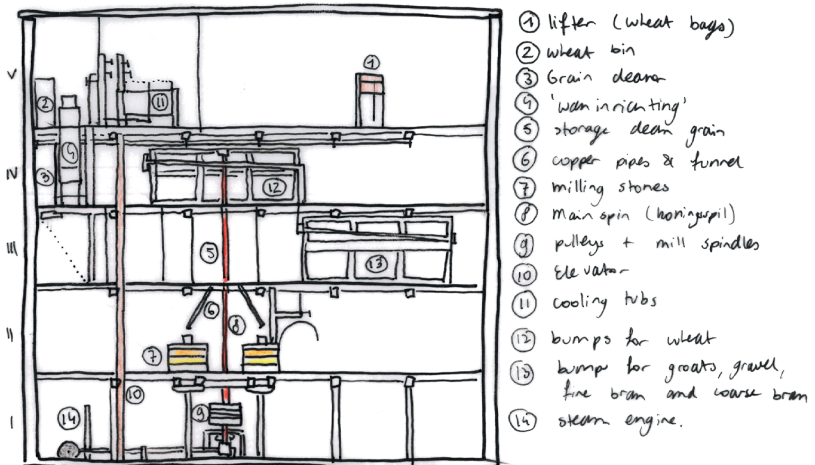 V
IV
III
II
I
1
2
11
3
4
12
5
13
6
8
7
10
9
14
① lifter (wheat bags)
② wheat bin
③ Grain cleaner
④ 'waninrichting'
⑤ storage clean grain
⑥ copper pipes & funnel
⑦ milling stones
⑧ main spin (koningsspil)
⑨ pulleys + mill spindles
⑩ Elevator
⑪ cooling tubs
⑫ bumps for wheat
⑬ bumps for groats, gravel,
fine bran and coarse bran
⑭ steam engine.